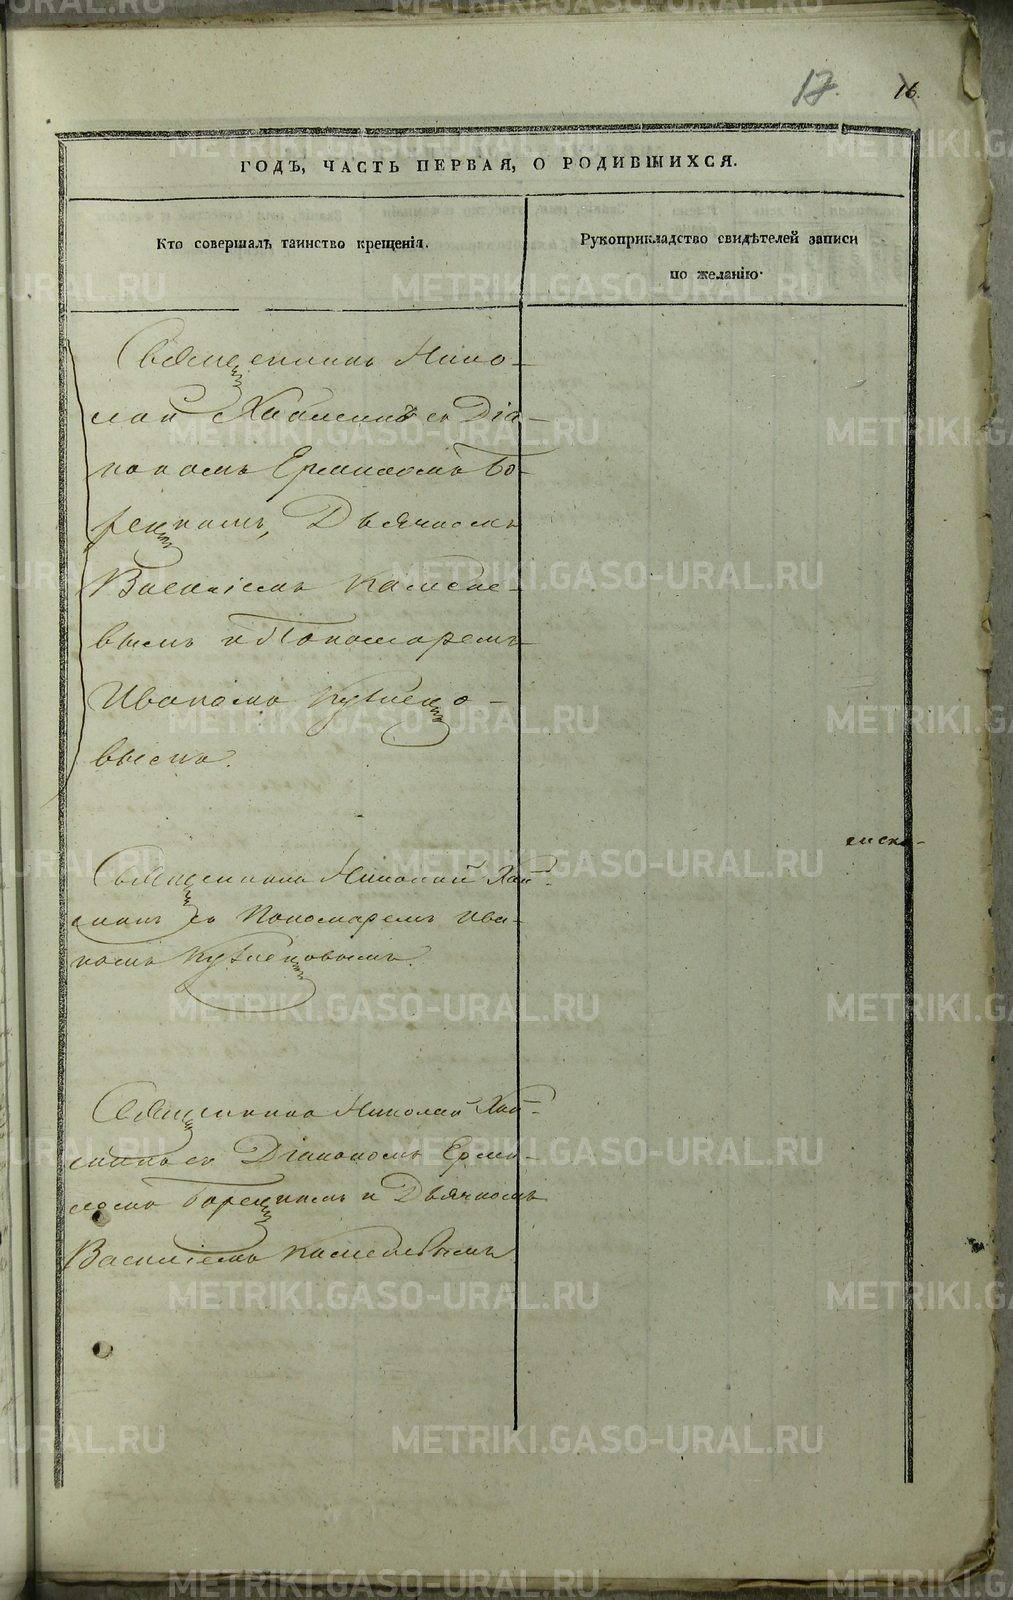 17. 16.
ГОДЪ, ЧАСТЬ ПЕРВАЯ, О РОДИВШИХСЯ.
Кто совершалъ таинство крещенія.
Рукоприкладство свидѣтелей записи
по желанію.
Священникъ Нико-
лай съ Діа-
кономъ Ермиломъ Бо-
рецкимъ, Дьячкомъ
Василіемъ Камене-
вымъ и Пономаремъ
Иваномъ Кузнецо-
вымъ.
Священникъ Николай
съ Пономаремъ Ива-
номъ Кузнецовымъ.
Священникъ Николай
съ Діакономъ Ерми-
ломъ Борецкимъ и Дьячкомъ
Василіемъ Каменевымъ
METRIKI.GASO-URAL.RU